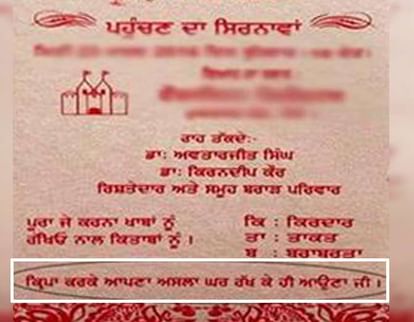 ਪਹੁੰਚਣ ਦਾ ਸਿਰਨਾਵਾਂ
ਰਾਹ ਤੱਕਦੇ:-
ਡਾ: ਅਵਤਾਰਜੀਤ ਸਿੰਘ
ਡਾ: ਕਿਰਨਦੀਪ ਕੌਰ
ਰਿਸ਼ਤੇਦਾਰ ਅਤੇ ਸਮੂਹ ਬਰਾੜ ਪਰਿਵਾਰ
ਪੂਰਾ ਜੇ ਕਰਨਾ ਖਾਬਾਂ ਨੂੰ
ਰੱਖਿਓ ਨਾਲ ਕਿਤਾਬਾਂ ਨੂੰ।
ਕਿ : ਕਿਰਦਾਰ
ਤਾ : ਤਾਕਤ
ਬ : ਬਰਾਬਰਤਾ
ਕ੍ਰਿਪਾ ਕਰਕੇ ਆਪਣਾ ਅਸਲਾ ਘਰ ਰੱਖ ਕੇ ਹੀ ਆਉਣਾ ਜੀ।